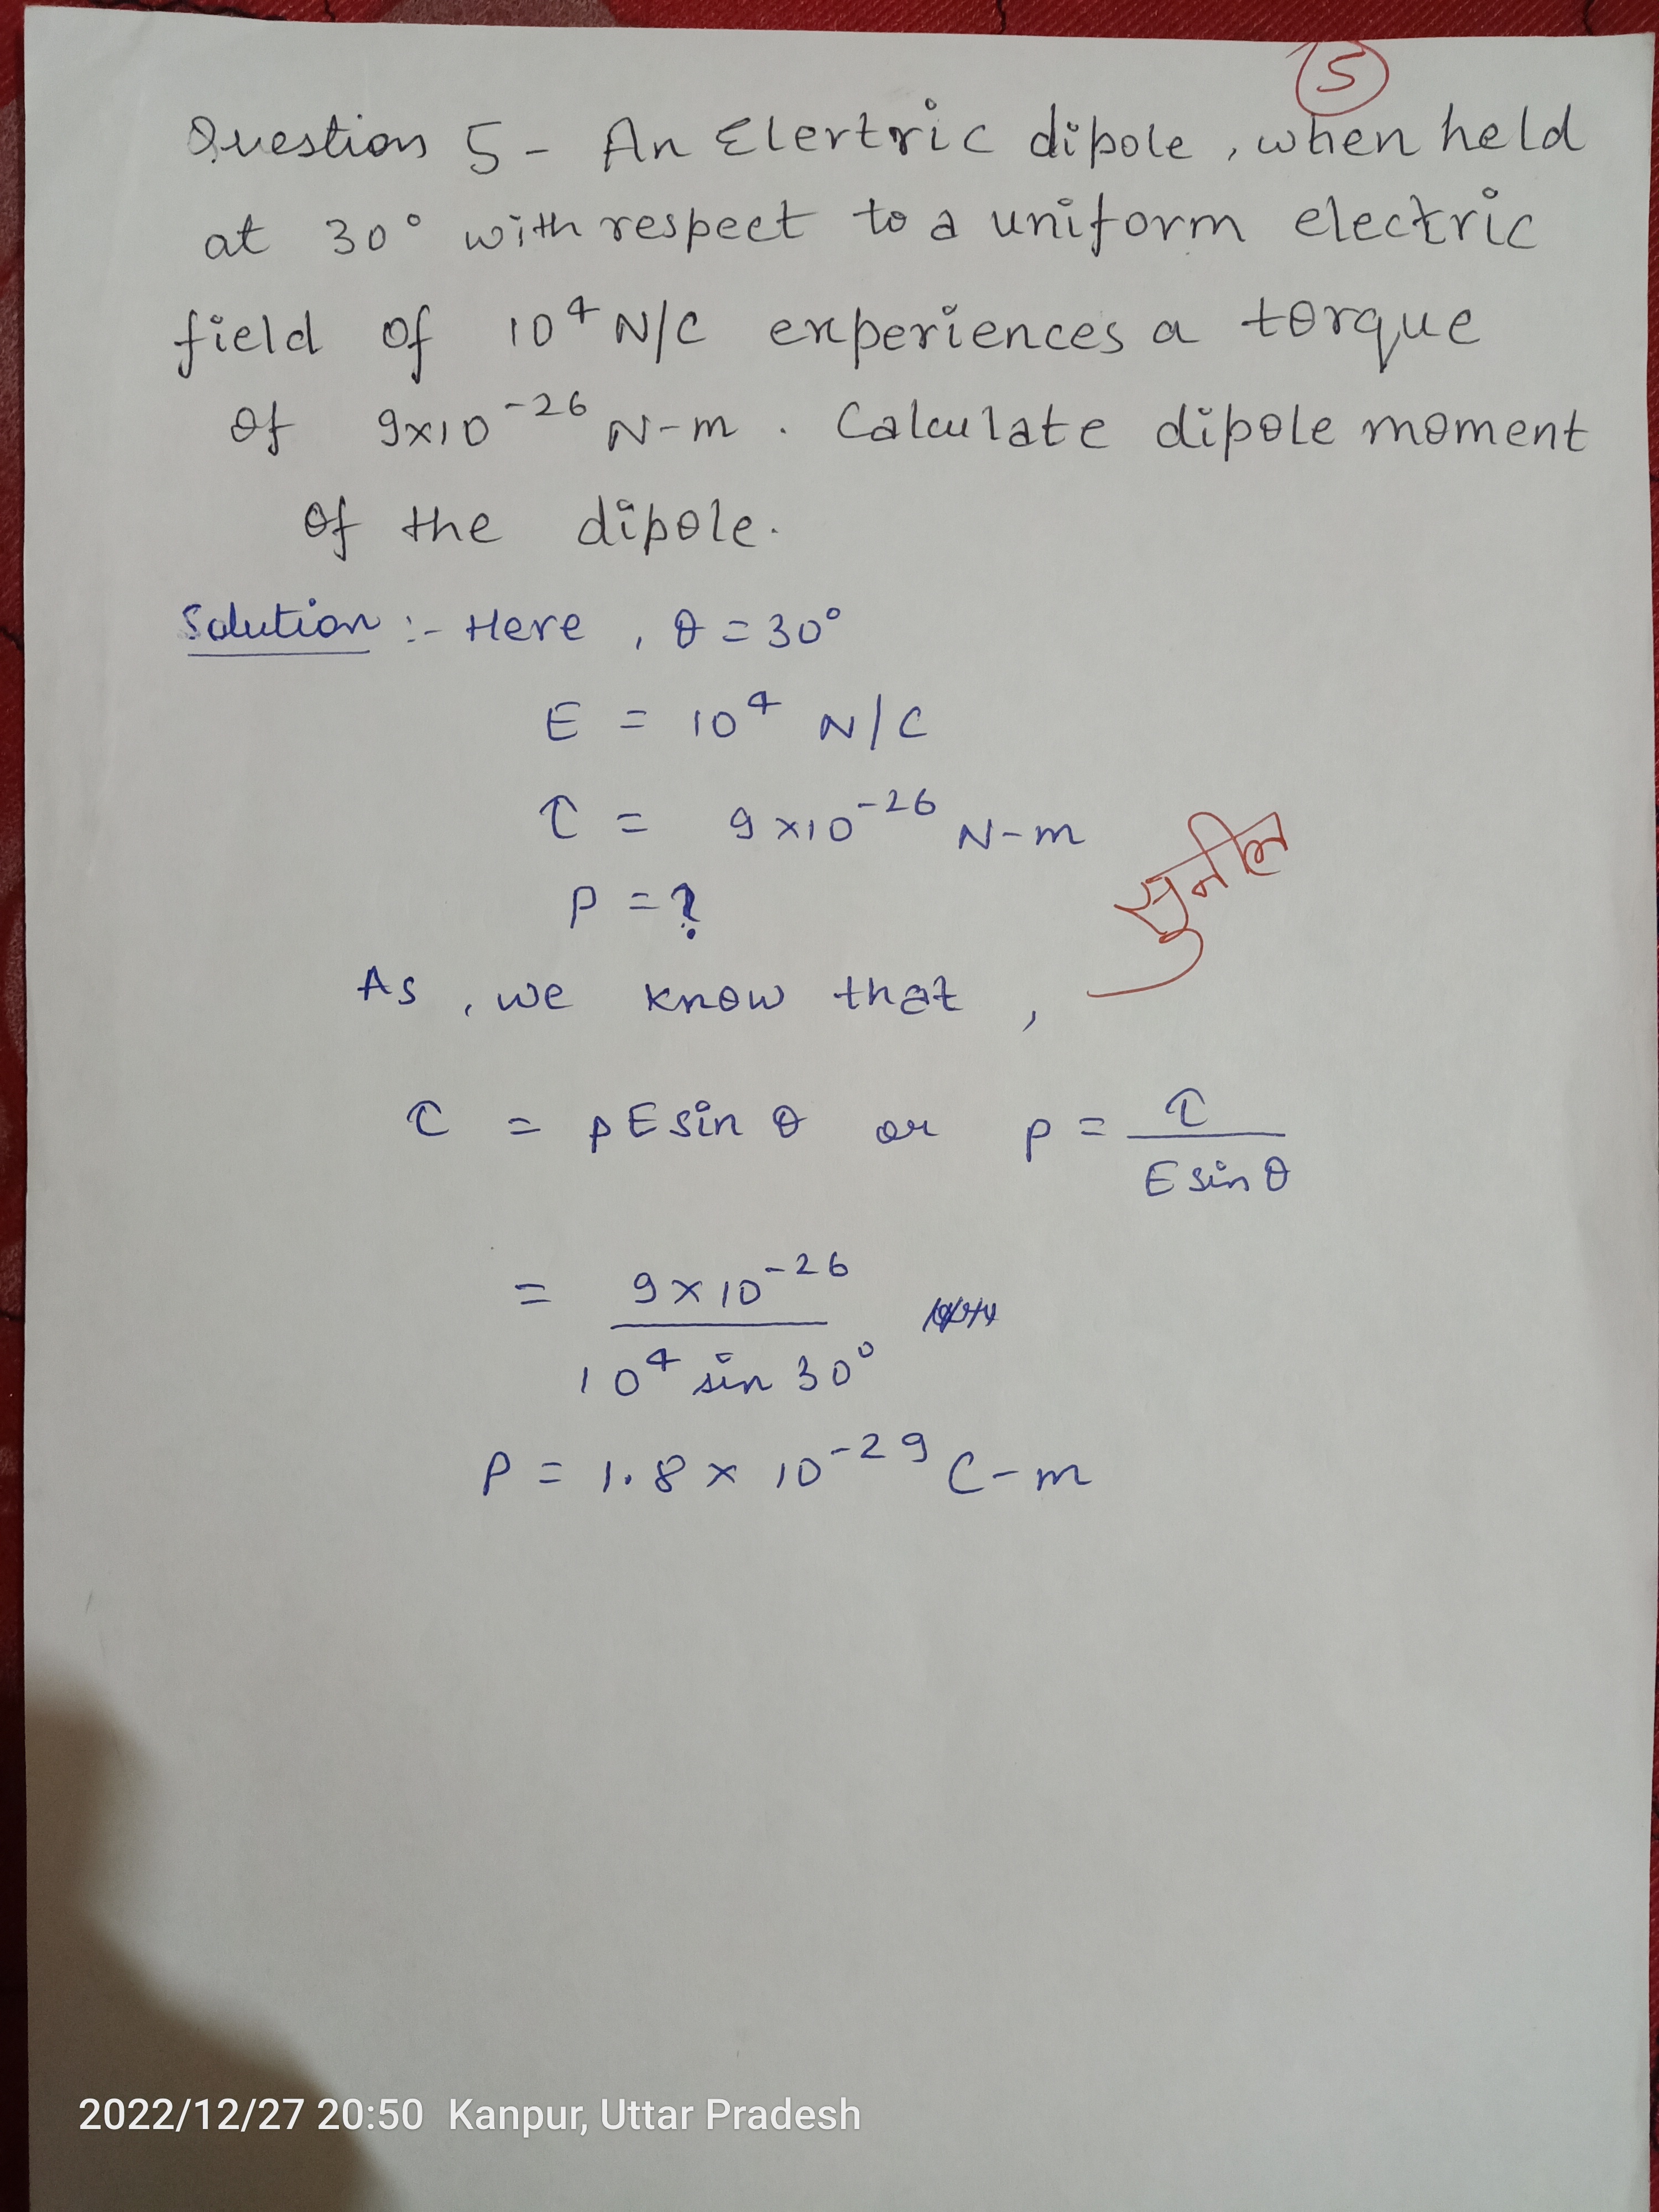 5
Question 5 - An Elertric dipole, when held
at 30° with respect to a uniform electric
field of 10⁴ N/C experiences a torque
of 9x10⁻²⁶ N-m. Calculate dipole moment
of the dipole.
Solution :- Here, θ = 30°
E = 10⁴ N/C
τ = 9x10⁻²⁶ N-m
P = ?
सुनील
As, we know that,
τ = pE sin θ or p = τ / E sin θ
= 9×10⁻²⁶ / 10⁴ sin 30°
P = 1.8 × 10⁻²⁹ C-m
2022/12/27 20:50 Kanpur, Uttar Pradesh